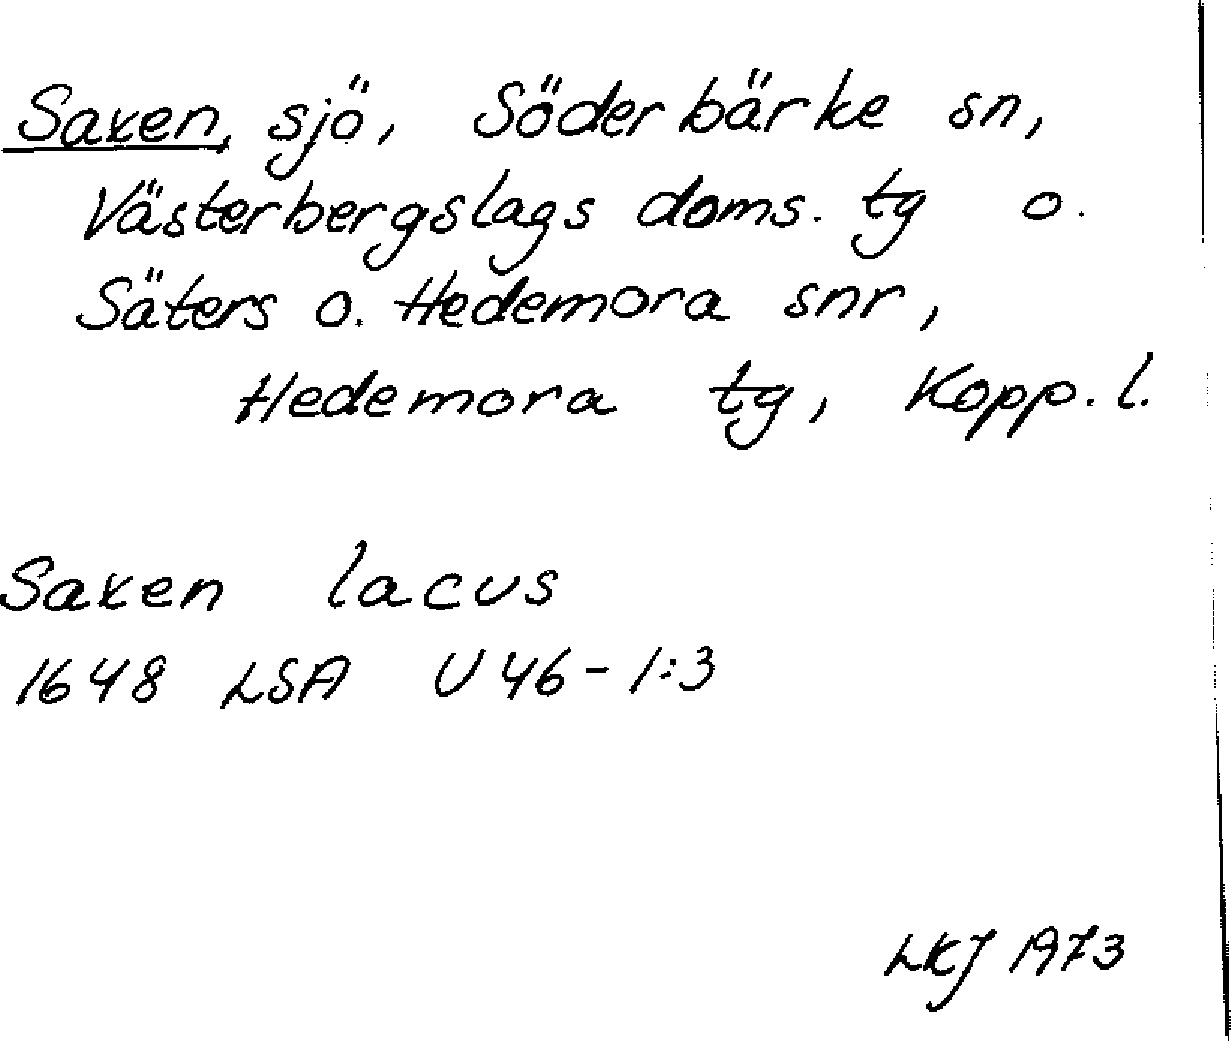 Saxen, sjö, Söderbärke sn,
Västerbergslags doms. tg o.
Säters o. Hedemora snr,
Hedemora tg, Kopp. l.
Saxen lacus
1648 LSA U 46-1:3
LKJ 1973